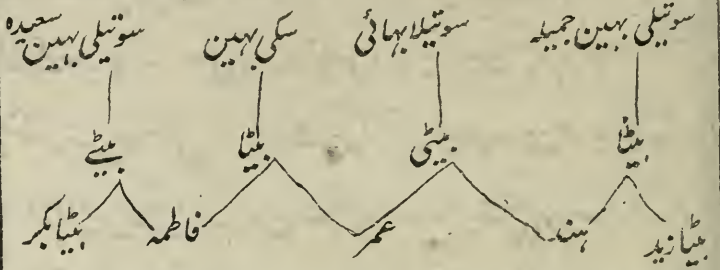 سوتیلی بہین جمیلہ سوتیلا بہائی سکی بہین سوتیلی بہین سعیدہ
بیٹا بیٹی بیٹا بیٹے
بیٹا زید ہندہ عمر فاطمہ بیٹا بکر